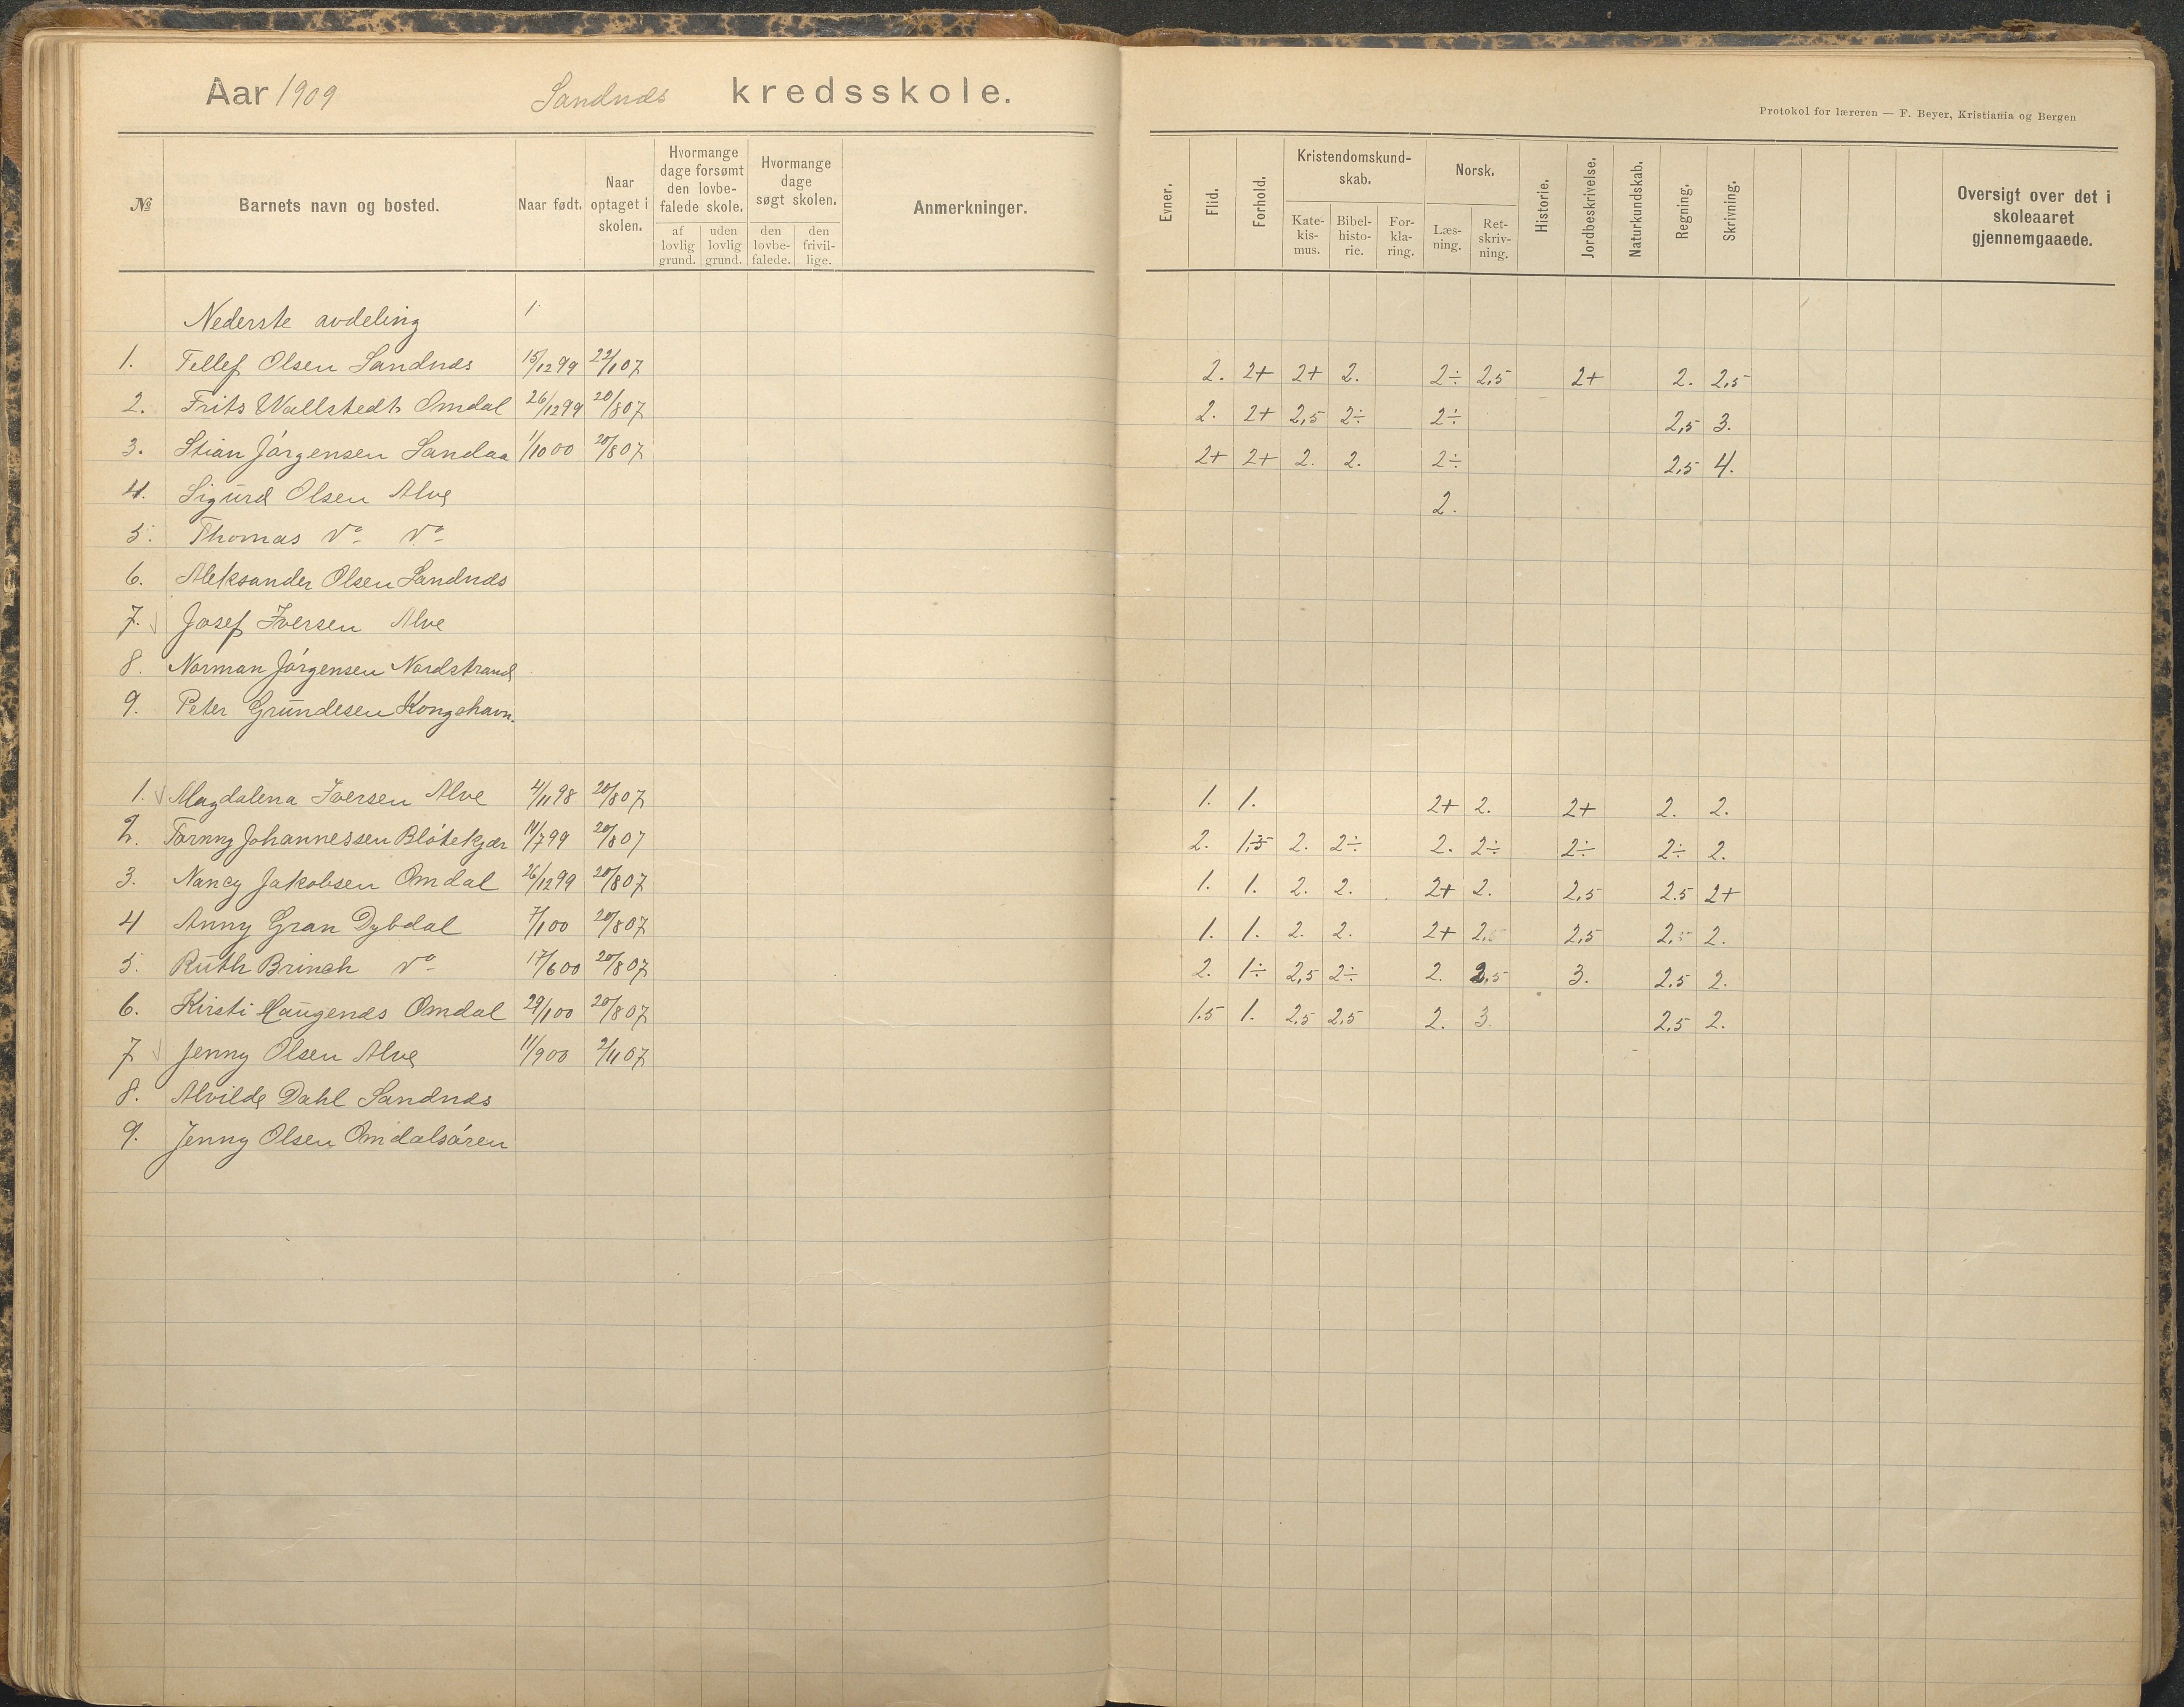 Aar 1909 Sandnæs kredsskole.
Protokol for læreren — F. Beyer, Kristiania og Bergen
№ Barnets navn og bosted. Naar født. Naar optaget i skolen. Hvormange dage forsømt den lovbefalede skole. af lovlig grund. uden lovlig grund. Hvormange dage søgt skolen. den lovbe-falede. den frivil-lige. Anmerkninger. Evner. Flid. Forhold. Kristendomskund-skab. Kate-kis-mus. Bibel-histo-rie. For-kla-ring. Norsk. Læs-ning. Ret-skriv-ning. Historie. Jordbeskrivelse. Naturkundskab. Regning. Skrivning. Oversigt over det i skoleaaret gjennemgaaede.
Nederste avdeling 1
1. Tellef Olsen Sandnæs 15/12 99 22/1 07 2. 2+ 2+ 2. 2÷ 2,5 2+ 2. 2,5
2. Frits Wallstedt Omdal 26/12 99 20/8 07 2. 2+ 2,5 2÷ 2÷ 2,5 3.
3. Stian Jörgensen Sandaa 1/10 00 20/8 07 2+ 2+ 2. 2. 2÷ 2,5 4.
4. Sigurd Olsen Alve 2.
5. Thomas Do Do
6. Aleksander Olsen Sandnæs
7. Josef Iversen Alve
8. Norman Jörgensen Nordstrand
9. Peter Grundesen Kongshavn.
1. Magdalena Iversen Alve 4/11 98 20/8 07 1. 1. 2+ 2. 2+ 2. 2.
2. Torany Johannessen Blötekjær /7 99 20/8 07 2. 1,5 2. 2÷ 2. 2÷ 2÷ 2÷ 2.
3. Nancy Jakobsen Omdal 26/12 99 20/8 07 1. 1. 2. 2. 2+ 2. 2,5 2.5 2+
4 Anny Gran Dybdal 7/1 00 20/8 07 1. 1. 2. 2. 2+ 2,5 2,5 2,5 2.
5. Ruth Brinch Do 17/6 00 20/8 07 2. 1÷ 2,5 2÷ 2. 2,5 3. 2.5 2.
6. Kirsti Haugenæs Omdal 29/1 00 20/8 07 1.5 1. 2,5 2,5 2. 3. 2,5 2.
7 Jenny Olsen Alve 11/9 00 2/11 07
8. Alvilde Dahl Sandnæs
9. Jenny Olsen Omdalsören